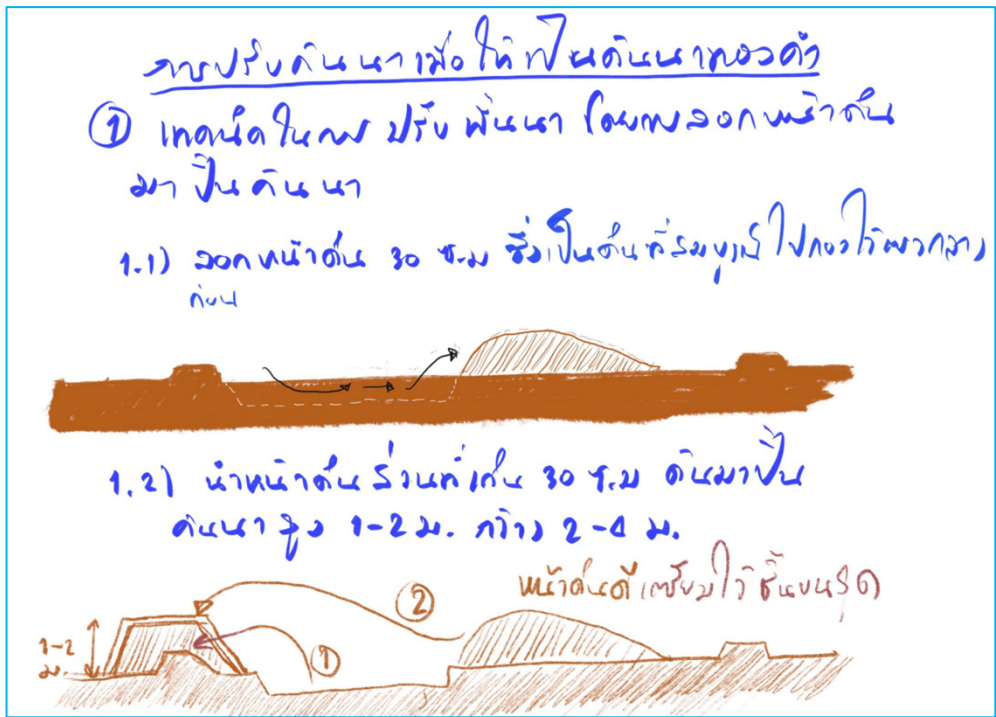 การปรับคันนาเพื่อให้เป็นคันนาทองคำ
① เทคนิคในการปรับพื้นนา โดยการลอกหน้าดิน
มาปั้นคันนา
1.1) ลอกหน้าดิน 30 ซ.ม ซึ่งเป็นดินที่สมบูรณ์ไปกองไว้ตรงกลาง
ก่อน
1.2) นำหน้าดินส่วนที่เกิน 30 ซ.ม ดินมาปั้น
คันนาสูง 1-2 ม. กว้าง 2-4 ม.
หน้าดินดีเตรียมไว้ชั้นบนสุด
②
1-2
ม.
①